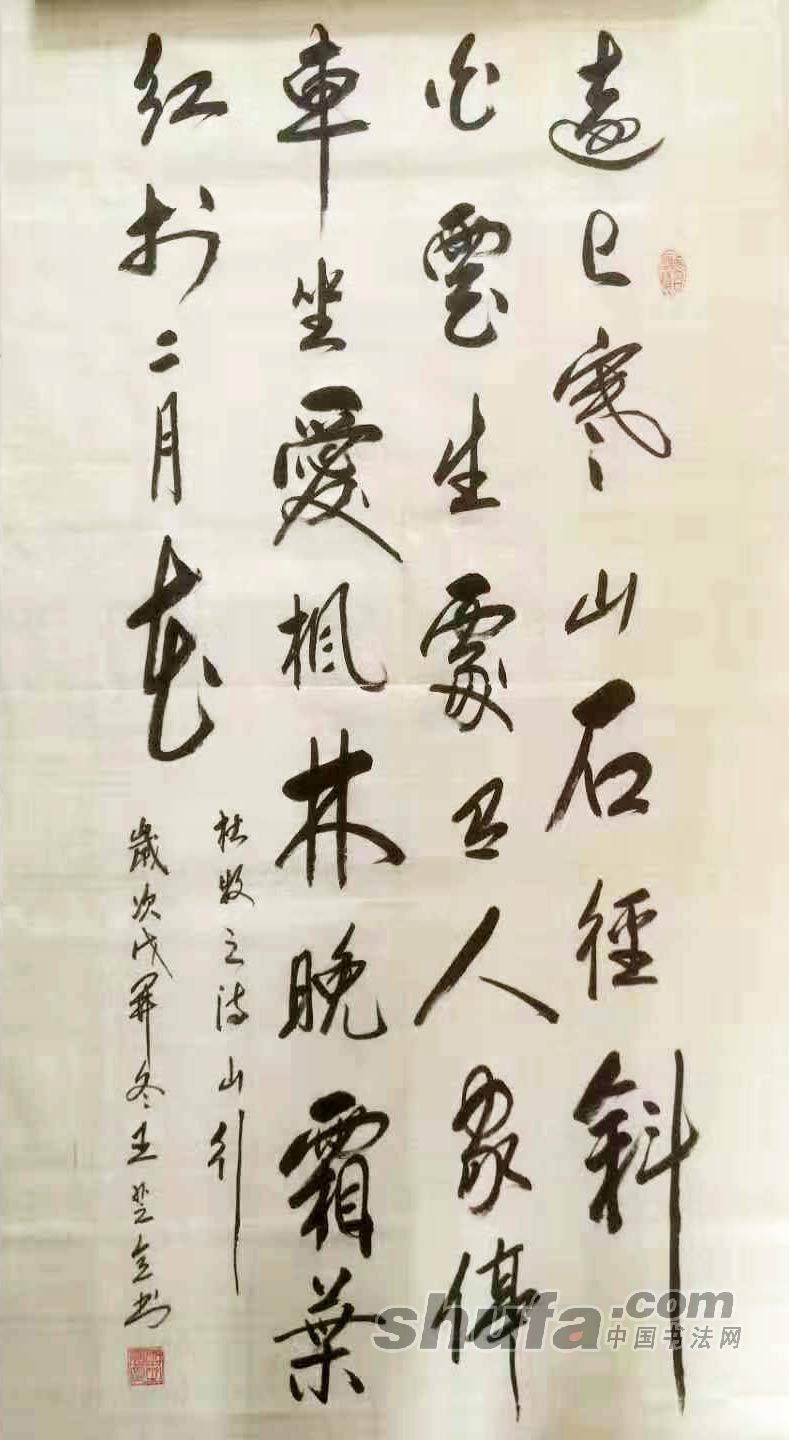 遠上寒山石徑斜
白雲生處有人家停
車坐愛楓林晚霜葉
红於二月花
杜牧之诗山行
歲次戊冬王书
shufa.com
中国书法网